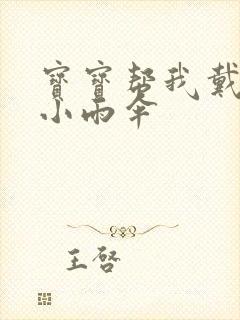 寶寶幫我戴
小雨傘
王啓